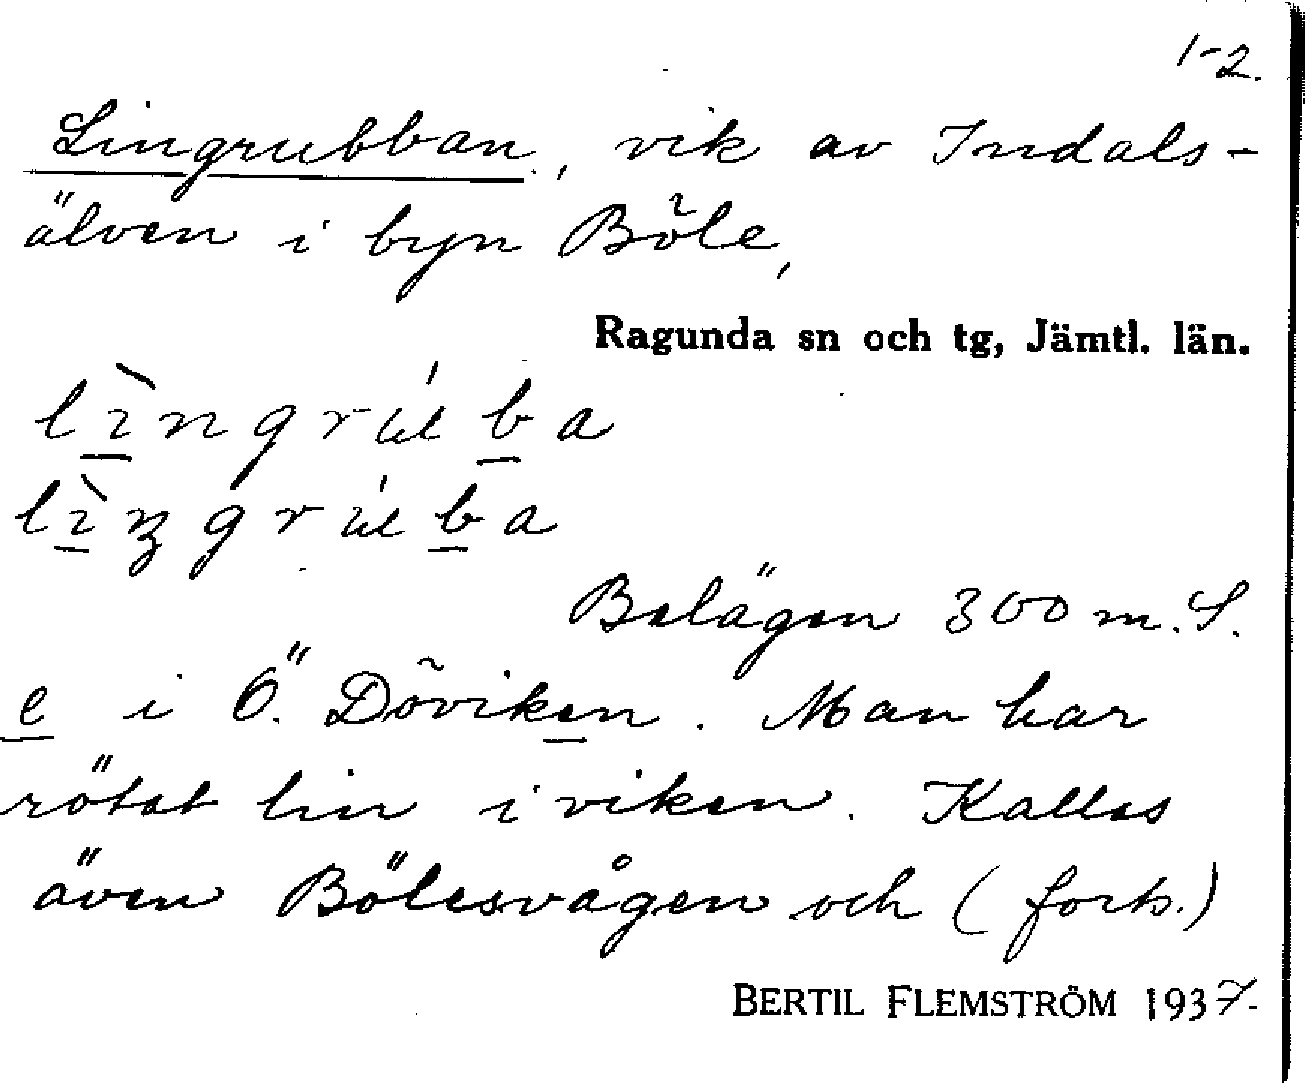 1-2.
Lingrubban, vik av Indals-
älven i byn Böle,
Ragunda sn och tg, Jämtl. län.
lìngrúba
lìngrúba
Belägen 300 m. S.
e i Ö. Döviken. Man har
rötat lin i viken. Kallas
även Bölesvågen och (forts.)
BERTIL FLEMSTRÖM 1937.